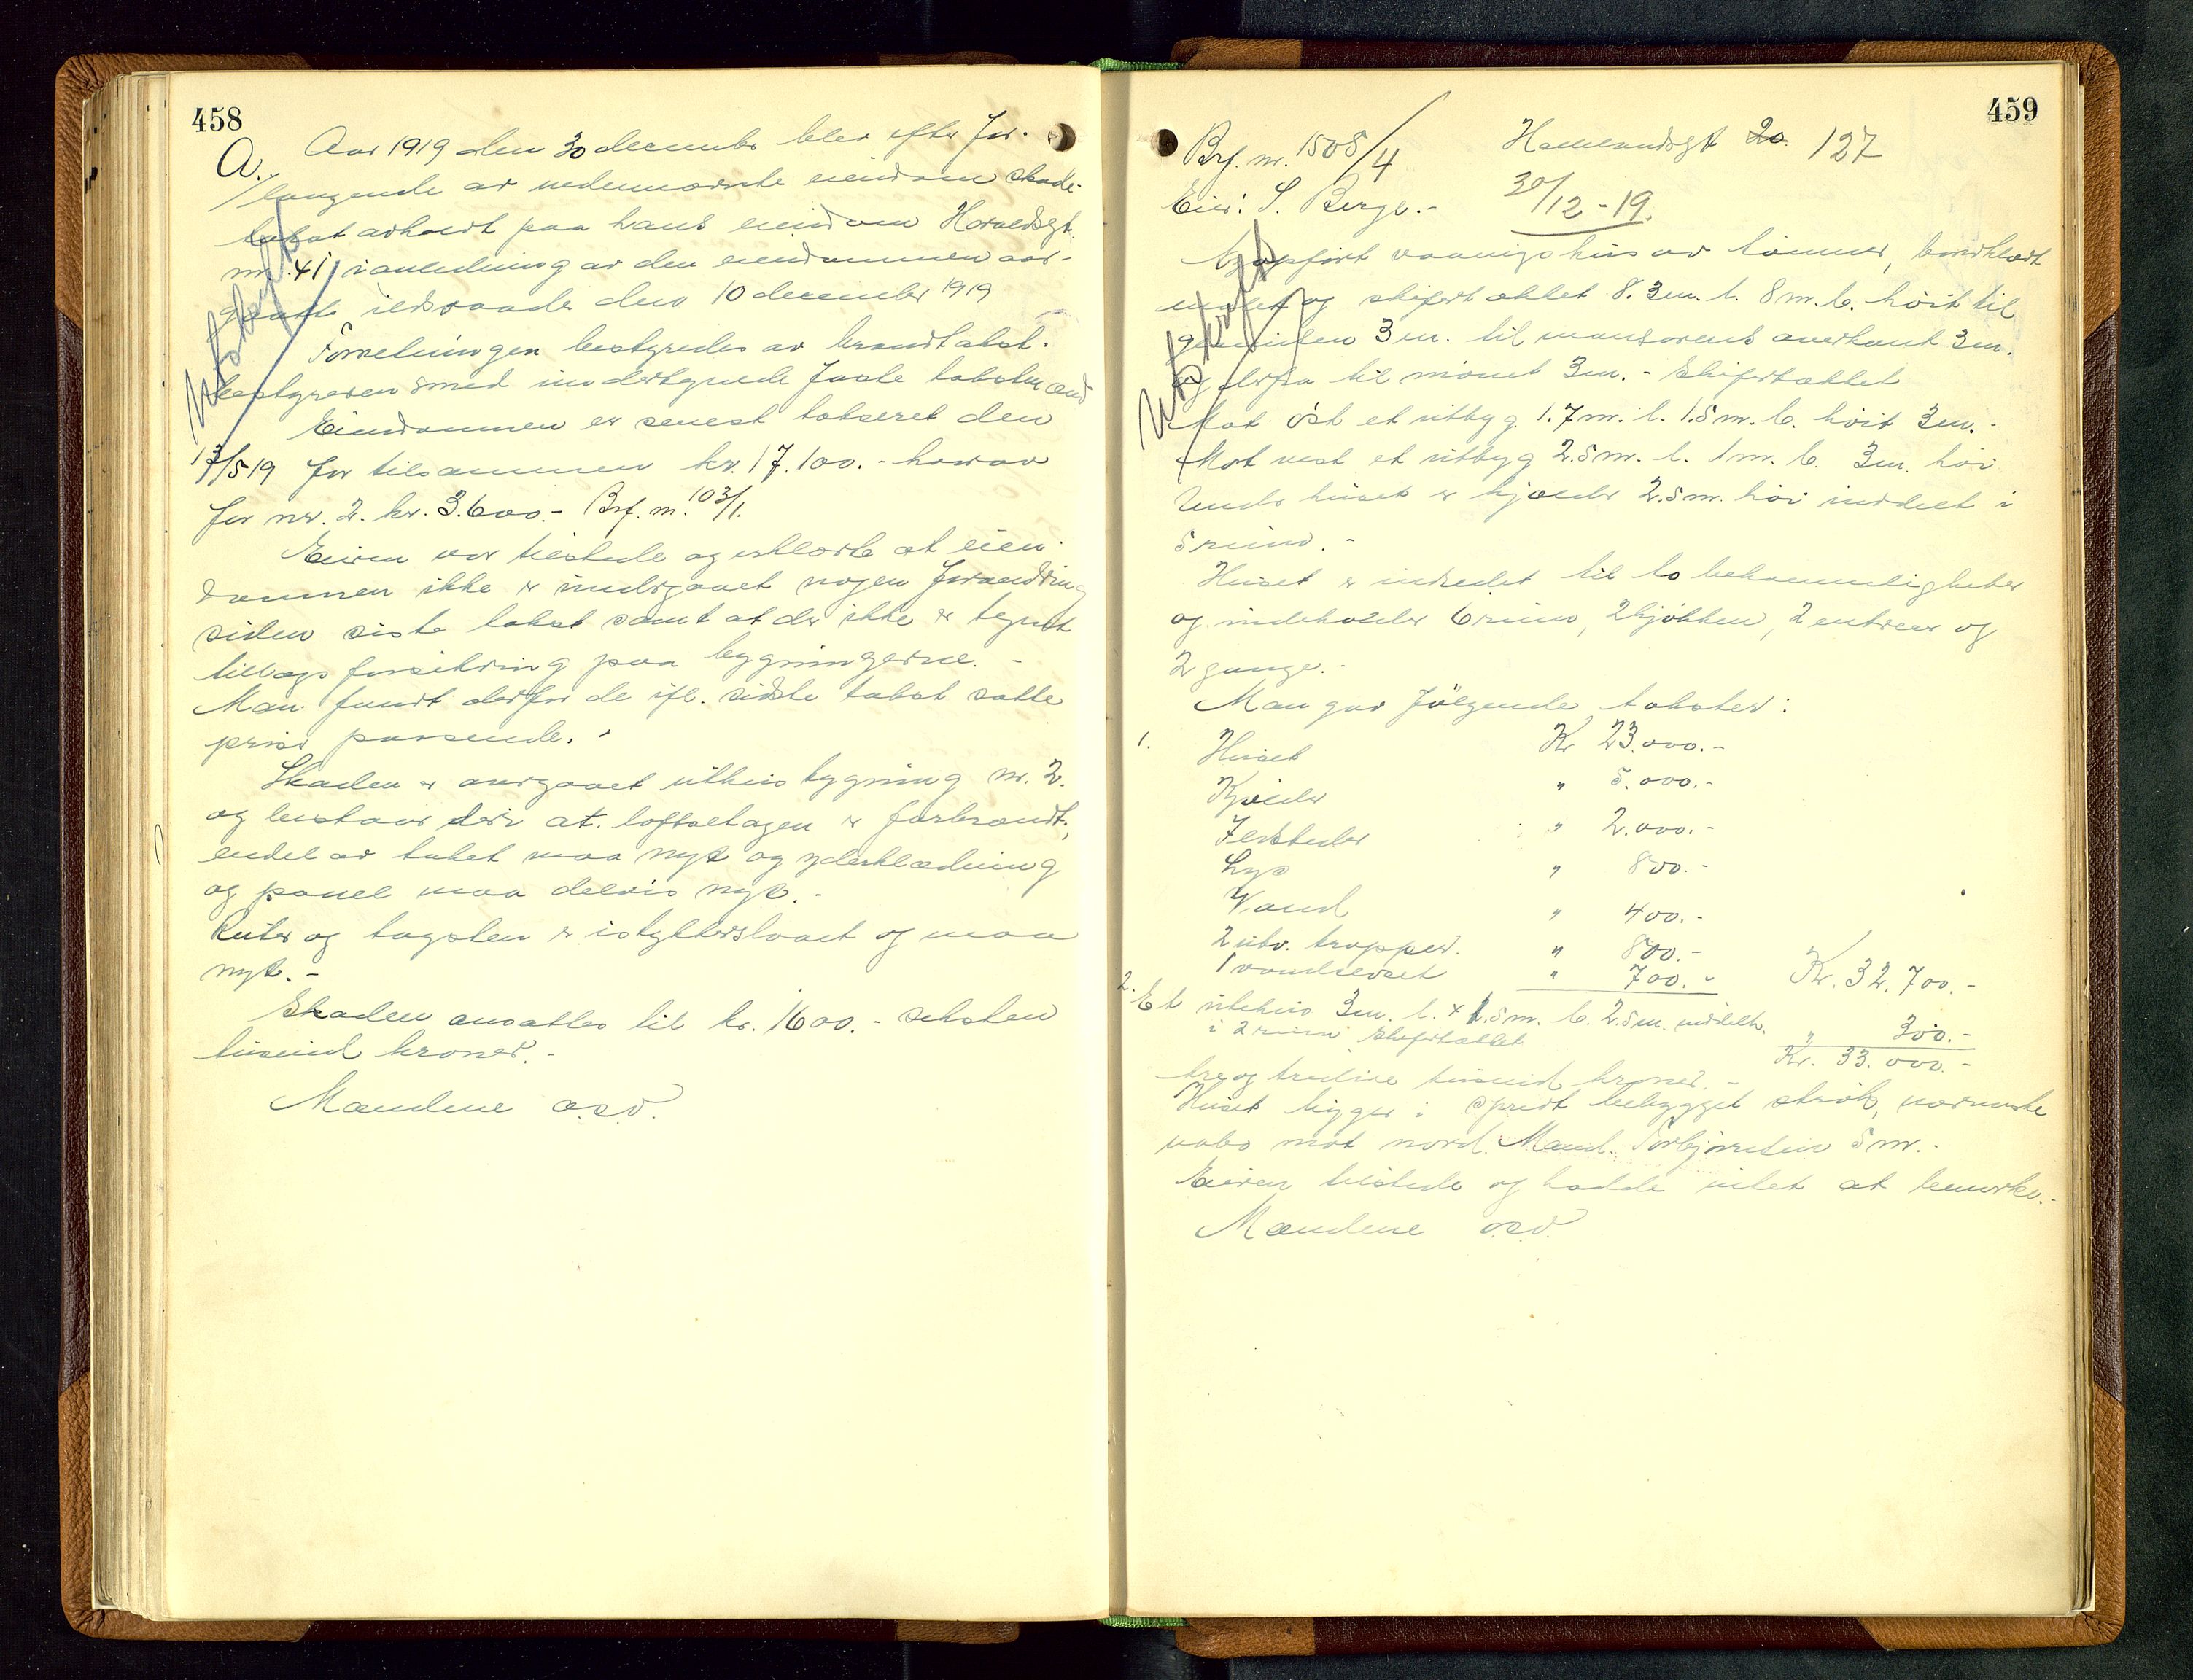 458
A. Aar 1919 den 30 december blev efter for-
langende av nedennævnte eiendom skade-
takst avholdt paa hans eiendom Haraldsgt.
nr. 41 i anledning av den eiendommen over-
gaatte ildsvaade den 10 december 1919
Utskrift
Forretningen bestyredes av brandtakst-
bestyreren med undertegnede faste takstmænd
Eiendommen er senest takseret den
13/5 19 for tilsammen kr. 17.100.- hvorav
for nr. 2. kr. 3.600.- Brf. nr. 103/1.
Eieren var tilstede og erklærte at eien-
dommen ikke er undergaaet nogen forandring
siden siste takst samt at der ikke er tegnet
tillægsforsikring paa bygningerne. -
Man fandt derfor de ifl. sidste takst satte
priser passende. -
Skaden er overgaaet uthusbygning nr. 2.
og bestaar deri at loftsetagen er forbrændt,
endel av taket maa nyt og yderklædning
og panel maa delvis nyt. -
Ruter og tagsten er istykkerslaaet og maa
nyt. -
Skaden ansattes til kr. 1600. - seksten
hundred kroner. -
Mændene o.s.v.
459
Brf. nr. 1505/4 Haukelandsgt 20. 127
Eier: S. Berge. - 30/12 - 19.
Utskrift
Opført vaaningshus av tømmer, bordklædt
malet og skifertækket 8.3m. l. 8 m. b. høit til
gesimsen 3 m. til mansardens overkant 3m.
og derfra til mønet 3m. - Skifertækket
Mot øst et utbyg 1.7m. l. 1.5 m. b. høit 3m. -
Mot vest et utbyg 2.5m. l. 1m. b. 3m. høi
Under huset er kjælder 2.5m. høi inddelt i
5 rum. -
Huset er indredet til to bekvemmeligheter
og indeholder 6 rum, 2 kjøkken, 2 entreer og
2 gange. -
Man gav følgende takster:
1. Huset Kr 23.000.-
Kjælder " 5.000.-
Ildsteder " 2.000.-
Lys " 800.-
Vand " 400.-
2 utv. trapper. " 800.-
1 vandklosset " 700.- Kr. 32.700.-
2. Et utehus 3m. l. x 1.5m. b. 2.5m. middelh.
i 2 rum skifertækket " 300.-
Kr. 33.000.-
tre og tredive tusind kroner. -
Huset ligger i spredt bebygget strøk, nærmeste
nabo mot nord. Mand. Torbjørnsen 5 m. -
Eieren tilstede og hadde intet at bemerke. -
Mændene o.s.v.